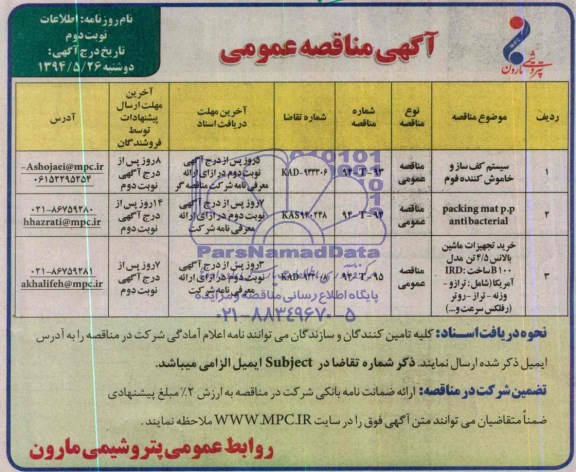 نام روزنامه: اطلاعات
نوبت دوم
تاریخ درج آگهی:
دوشنبه ۱۳۹۴/۵/۲۶
آگهی مناقصه عمومی
پتروشیمی مارون
ردیف
موضوع مناقصه
نوع مناقصه
شماره مناقصه
شماره تقاضا
آخرین مهلت دریافت اسناد
آخرین مهلت ارسال پیشنهادات توسط فروشندگان
آدرس
۱
سیستم کف ساز و خاموش کننده فوم
مناقصه عمومی
۹۴-T-۹۳
KAD-۹۳۳۳۰۶
روز پس از درج آگهی نوبت دوم در ازای ارائه معرفی نامه شرکت مناقصه گر
۸روز پس از درج آگهی نوبت دوم
Ashojaei@mpc.ir-
۰۶۱۵۲۲۹۵۲۵۴
۲
packing mat p.p antibacterial
مناقصه عمومی
۹۴-T-۹۴
KAS۹۴۰۲۴۸
۷روز پس از درج آگهی نوبت دوم در ازای ارائه معرفی نامه شرکت
۱۴روز پس از درج آگهی نوبت دوم
۰۲۱-۸۶۷۵۹۲۸۰
hhazrati@mpc.ir
۳
خرید تجهیزات ماشین بالانس ۴/۵ تن مدل B۱۰۰ ساخت IRD: آمریکا (شامل: ترازو - وزنه - تراز - روتر (رفلکس سرعت و...)
مناقصه عمومی
۹۴-T-۹۵
۳روز پس از درج آگهی نوبت دوم در ازای ارائه معرفی نامه شرکت
۷روز پس از درج آگهی نوبت دوم
۰۲۱-۸۶۷۵۹۲۸۱
akhalifeh@mpc.ir
ParsNamadData
پایگاه اطلاع رسانی مناقصه و مزایده
۰۲۱-۸۸۳۴۹۶۷۰-۵
نحوه دریافت اسناد: کلیه تامین کنندگان و سازندگان می توانند نامه اعلام آمادگی شرکت در مناقصه را به آدرس
ایمیل ذکر شده ارسال نمایند. ذکر شماره تقاضا در Subject ایمیل الزامی میباشد.
تضمین شرکت در مناقصه: ارائه ضمانت نامه بانکی شرکت در مناقصه به ارزش ۲٪ مبلغ پیشنهادی
ضمناً متقاضیان می توانند متن آگهی فوق را در سایت WWW.MPC.IR ملاحظه نمایند.
روابط عمومی پتروشیمی مارون